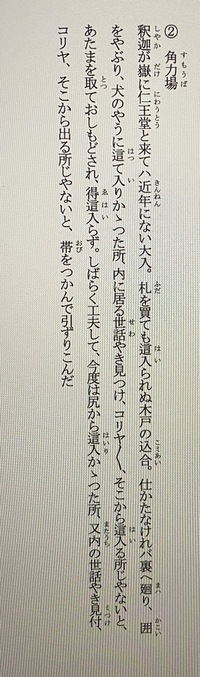 ② 角力場
釈迦が嶽に仁王堂と来てハ近年にない大入。札を買ても這入られぬ木戸の込合。仕かたなけれバ裏へ廻り、囲
をやぶり、犬のやうに這て入りかゝつた所、内に居る世話やき見つけ、コリヤ〳〵、そこから這入る所じやないと、
あたまを取ておしもどされ、得這入らず。しばらく工夫して、今度は尻から這入かゝつた所、又内の世話やき見付、
コリヤ、そこから出る所じやないと、帯をつかんで引ずりこんだ